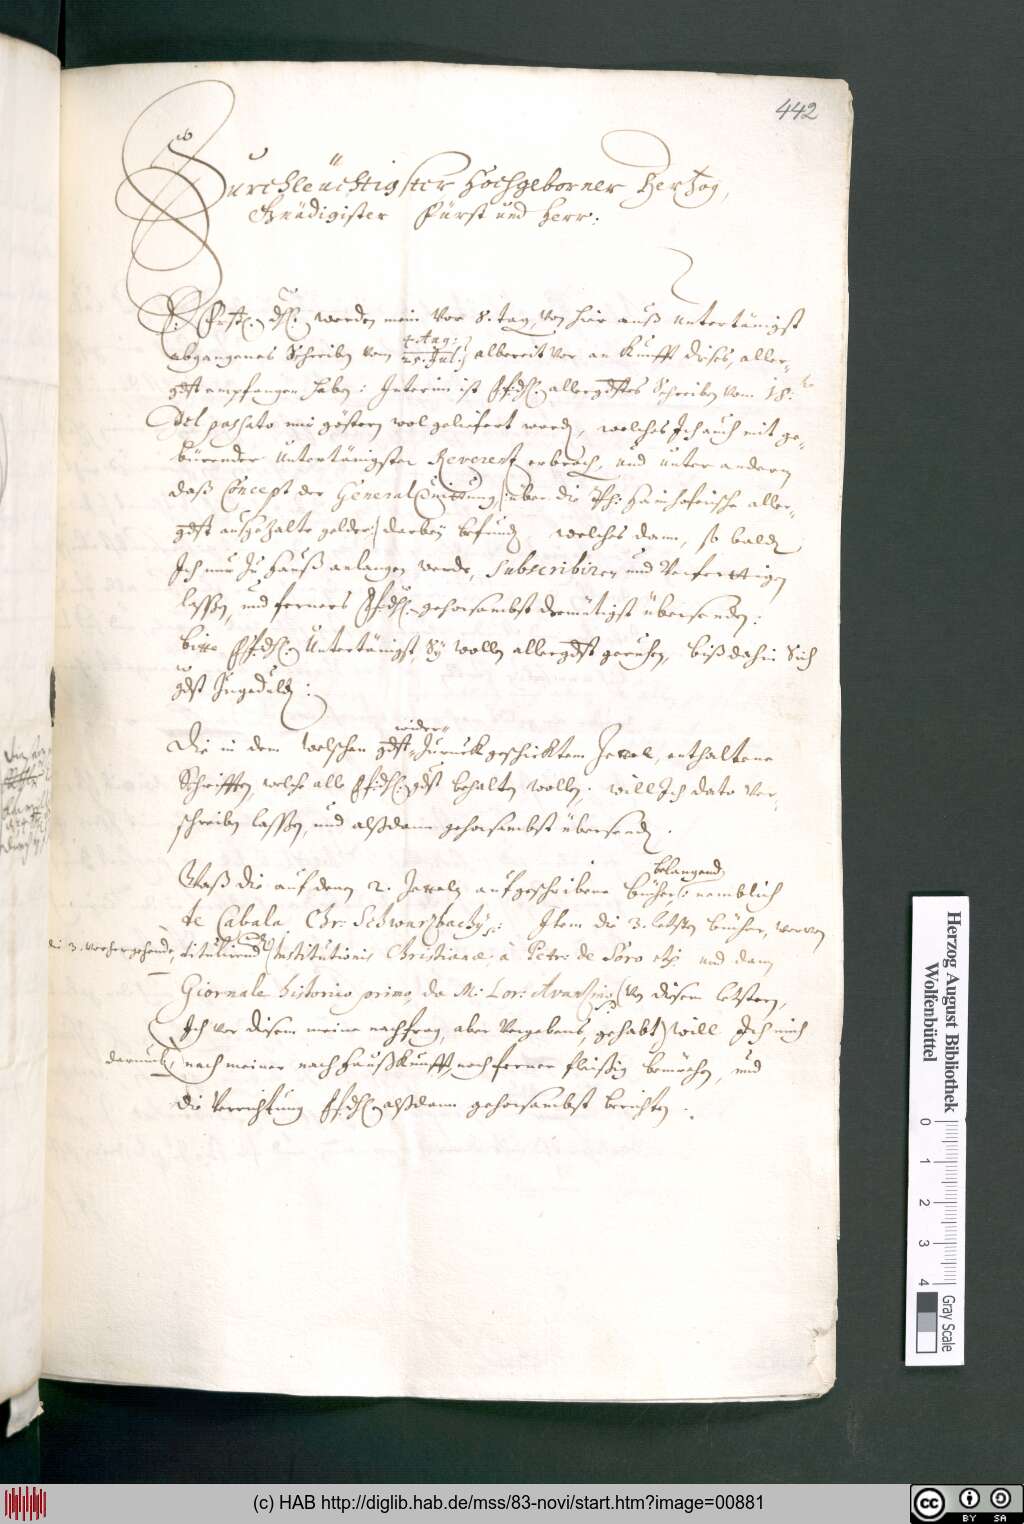 442
Durchleüchtigster Hochgeborner Hertzog,
Gnädigister Fürst und Herr:
E. Frstl. Dhl. werden mein Vor 8. tag, von hier auß Untertänigst
abgangenes Schreiben vom 4. Aug: / 25. Jul: albereit vor an Kunfft dises, aller-
gdst empfangen haben: Interim ist E.F.Dhl. allergdstes Schreiben vom 18.
del passato mir gestern wol geliefert word, welches Ich auch mit ge-
bürender Untertänigster Reverentz erbroch, und unter andern
daß Concept der General Quittung (: über die Ph: Hainhoferische aller-
gdst außgezalte gelder:) darbey befund, welches dann, so bald
Ich nur zu Hauß anlangen werde, Subscribiren und Verferttigen
lassen, und ferners E.F.Dhl. gehorsambst demütigst übersenden:
bitte E.F.Dhl. Untertänigst, Sy wollen allergdst geruhen, biß dahin Sich
gdst Zugeduld:
Die in dem Welschen gdst wider Zuruckgeschicktem enthaltene
Schrifften, welche alle E.F.Dhl. gdst behalten wollen, will Ich dato Ver-
schreiben lassen, und alßdann gehorsambst übersend.
Waß die auf denen 2. aufgeschribene Bücher belangend (: nemblich
te Cabala Chr: Schwartzbachy :) Item die 3. letsten bücher, worvon
die 3. vorhergehende, titulirend Institutionis Christianæ, à Petr: de Soto etc: und dann
Giornale historico primo, da M: Lor: (von disem letstern,
Ich vor disem meine nachfrag, aber Vergebens, gehabt) will Ich mich
darumb, nach meiner nach Hauß Kunfft, noch ferner fleißig bemühen, und
die Verrichtung E.F.Dhl. alßdann gehorsambst berichten.
Herzog August Bibliothek
Wolfenbüttel
0 1 2 3 4
Gray Scale
(c) HAB http://diglib.hab.de/mss/83-novi/start.htm?image=00881
cc BY SA